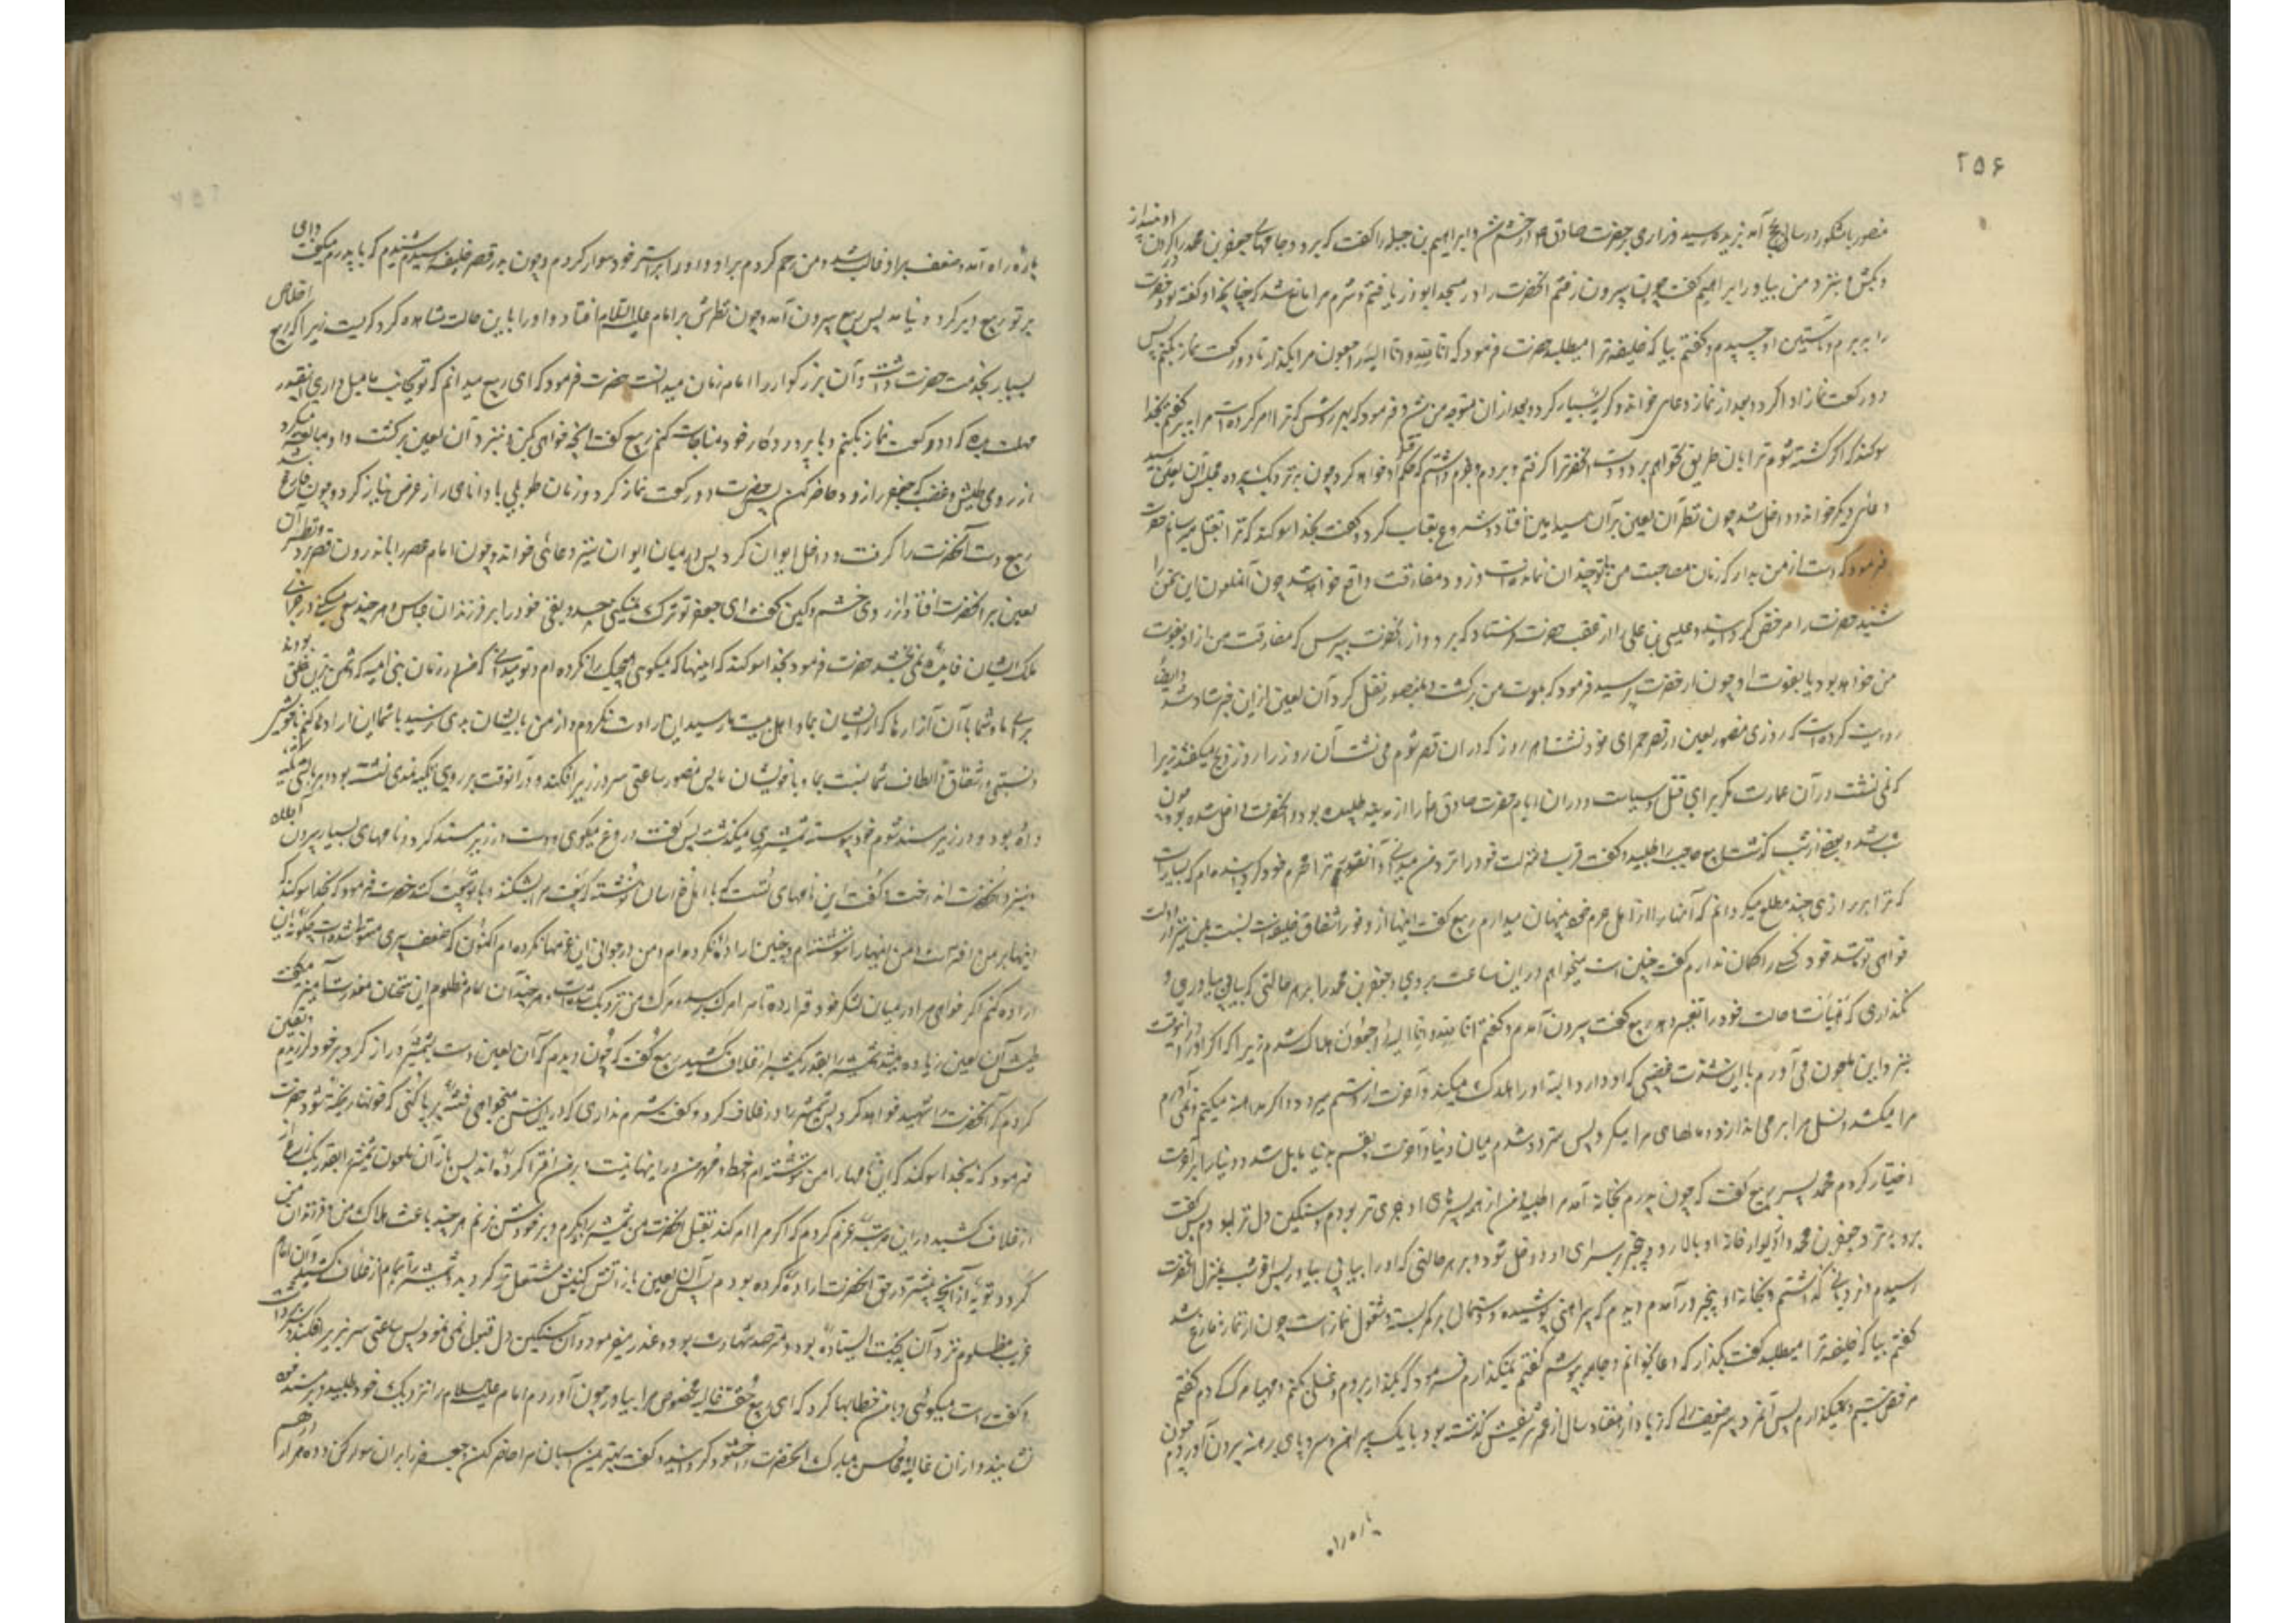 ۲۵۶
منصور بامتکور در سال حج آمد بزیده رسید فزاری بر حضرت صادق در خشم شد و ابراهیم بن جبله را گفت که برو و جامهای جعفر بن محمد را در گردن او بینداز
و بکش و بنزد من بیاور ابراهیم گفت چون بیرون رفتم آنحضرت را در مسجد ابوذر یافتم و شرم مرا مانع شد که چنانچه او گفته بود حضرت
را ببرم و بآستین او چسپیدم و گفتم بیا که خلیفه ترا میطلبد حضرت فرمود که انا لله و انا الیه راجعون مرا بگذار تا دو رکعت نماز بکنم پس
دو رکعت نماز ادا کرد و بعد از نماز دعای خواند و گریه بسیار کرد و بعد از ان متوجه من شد و فرمود که بهر روش که ترا امر کرده است مرا ببر گفتم بخدا
سوکند که اگر کشته شوم ترا بان طریق نخواهم برد و دست آنحضرت را گرفتم و بردم و جزم داشتم که حکم قتل او خواهد کرد چون بنزدیک پرده مجلس آن لعین رسید
دعای دیگر خواند و داخل شد چون نظر آن لعین بر آن سید امین افتاد شروع بعتاب کرد و گفت بخدا سوکند که ترا بقتل میرسانم حضرت
فرمود که دست از من بدار که زمان مصاحبت من با تو چندان نمانده است و زود مفارقت واقع خواهد شد چون آنملعون این سخن را
شنید حضرت را مرخص گردانید و عیسی بن علی را از عقب حضرت فرستاد که برو و از آنحضرت بپرس که مفارقت من از او بفوت
من خواهد بود یا بفوت او چون از حضرت پرسید فرمود که بموت من برگشت و بمنصور نقل کرد آن لعین از این خبر شاد شد و ایضاً
روایت کرده است که روزی منصور لعین در قصر حمرای خود نشست و هر روز که در ان قصر شوم می نشست آن روز را روز ذبح میگفتند زیرا
که نمی نشست در آن عمارت مگر برای قتل و سیاست و در ان ایام حضرت صادق را از مدینه طلبیده بود و آنحضرت داخل شده بود چون
شب شد و بعضی از شب گذشت ربیع حاجب را طلبید و گفت قرب و منزلت خود را نزد من میدانی و آنقدر ترا محرم خود گردانیده ام که بسیاریست
که ترا بر رازی چند مطلع میگردانم که آنها را از اهل حرم خود پنهان میدارم ربیع گفت اینها از وفور اشفاق خلیفه است نسبت بمن و من نیز در دولت
خواهی تو مانند خود کسی را گمان ندارم گفت چنین است میخواهم در این ساعت بروی و جعفر بن محمد را بهر حالتی که بیابی بیاوری و
نگذاری که هیأت و حالت خود را تغییر دهد ربیع گفت بیرون آمدم و گفتم انا لله و انا الیه راجعون هلاک شدم زیرا که اگر او را در اینوقت
بنزد این ملعون می آورم با این شدت غضبی که او دارد البته او را هلاک میکند و آخرت از دستم میرود و اگر مداهنه میکنم و نمی آورم
مرا میکشد و نسل مرا بر می اندازد و مالهای مرا میگیرد پس متردد شدم میان دنیا و آخرت و نفسم بدنیا مایل شد و دنیا را بر آخرت
اختیار کردم محمد پسر ربیع گفت که چون پدرم بخانه آمد مرا طلبید و من از همه پسرهای او جری تر بودم و سنگین دل تر بودم پس گفت
برو بنزد جعفر بن محمد و از دیوار خانه او بالا رو و بیخبر بسرای او داخل شو و بهر حالتی که او را بیابی بیاور پس آخر شب بمنزل آنحضرت
رسیدم و نردبانی گذاشتم و بخانه او بیخبر در آمدم دیدم که پیراهنی پوشیده و دستمالی بر کمر بسته و مشغول نماز است چون از نماز فارغ شد
گفتم بیا که خلیفه ترا میطلبد گفت بگذار که دعا بخوانم و جامه بپوشم گفتم نمیگذارم فرمود که بگذار بروم و غسلی بکنم و مهیای مرگ گردم گفتم
مرخص نیستم و نمیگذارم پس آنمرد پیر ضعیف را که زیاده از هفتاد سال از عمر شریفش گذشته بود با یک پیراهن و سر و پای برهنه بیرون آوردم چون
پاره راه
پاره راه آمد و ضعف بر او غالب شد و من رحم کردم بر او و او را بر استر خود سوار کردم و چون بدر قصر خلیفه رسیدم شنیدم که با پدرم میگفت وای
بر تو ربیع دیر کرد و نیامد پس ربیع بیرون آمد و چون نظرش بر امام علیه السلام افتاد و او را باین حالت مشاهده کرد گریست زیرا که ربیع اخلاص
بسیار بخدمت حضرت داشت و آن بزرگوار را امام زمان میدانست حضرت فرمود که ای ربیع میدانم که تو بجانب ما میل داری اینقدر
مهلت بده که دو رکعت نماز بکنم و با پروردگار خود مناجات کنم ربیع گفت آنچه خواهی بکن و بنزد آن لعین برگشت و او مبالغه میکرد
از روی طیش و غضب که جعفر را زود حاضر کن پس حضرت دو رکعت نماز کرد و زمان طویلی با دانای راز عرض نیاز کرد و چون فارغ شد
ربیع دست آنحضرت را گرفت و داخل ایوان کرد پس در میان ایوان نیز دعائی خواند و چون امام عصر را باندرون قصر برد و نظر آن
لعین بر آنحضرت افتاد از روی خشم و کین گفت ای جعفر تو ترک نمیکنی حسد و بغی خود را بر فرزندان عباس و هر چند سعی میکنی در خرابی
ملک ایشان فایده نمی بخشد حضرت فرمود بخدا سوکند که اینها که میگوئی هیچیک را نکرده ام و تو میدانی که من در زمان بنی امیه که دشمن ترین خلق بودند
برای ما و شما با آن آزارها که از ایشان بما و اهل بیت ما رسید این اراده نکردم و از من بایشان بدی نرسید با شما این اراده کنم با خویشی
نسبتی و اشفاق و الطاف شما نسبت بما و با خویشان ما پس منصور ساعتی سر در زیر افکند و در آنوقت بر روی نمدی نشسته بود و بر بالشی تکیه
داده بود و در زیر مسند شوم خود پیوسته شمشیری میگذاشت پس گفت دروغ میگوئی و دست در زیر مسند کرد و نامهای بسیار بیرون آورد
و بنزد آنحضرت انداخت و گفت این نامهای تست که باهل خراسان نوشته که بیعت مرا بشکنند و با تو بیعت کنند حضرت فرمود که بخدا سوکند که
اینها بر من افتراست و من اینها را ننوشته ام و چنین اراده نکرده ام و من در جوانی این عزمها نکرده ام اکنون که ضعف پیری بر من مستولی شده است چگونه این
اراده کنم اگر خواهی مرا در میان لشکر خود قرار ده تا مرا مرگ برسد و مرگ من نزدیک شده است و هر چند آن امام مظلوم این سخنان معذرت آمیز میگفت
طیش آن لعین زیاده میشد و شمشیر را بقدر یک شبر از غلاف کشید ربیع گفت که چون دیدم که آن لعین دست بشمشیر دراز کرد بر خود لرزیدم و یقین
کردم که آنحضرت را شهید خواهد کرد پس شمشیر را در غلاف کرد و گفت شرم نداری که در این سن میخواهی فتنه بر پا کنی که خونها ریخته شود حضرت
فرمود که نه بخدا سوکند که این نامها را من ننوشته ام و خط و مهر من در اینها نیست و بر من افترا کرده اند پس باز آن ملعون شمشیر را بقدر یک ذراع از
از غلاف کشید در این مرتبه عزم کردم که اگر مرا امر کند بقتل آنحضرت من شمشیر را بگیرم و بر خودش بزنم هر چند باعث هلاک من و فرزندان من
گردد و توبه از آنچه پیشتر در حق آنحضرت اراده کرده بودم پس آن لعین باز آتش کینش مشتعل تر گردید و شمشیر را تمام از غلاف کشید و آن امام
غریب مظلوم نزد آن بدبخت ایستاده بود و مترصد شهادت بود و عذر میفرمود و آن سنگین دل قبول نمی نمود پس ساعتی سر بزیر افکند و سر برداشت
و گفت راست میگوئی و با من خطابها کرد که ای ربیع حقه غالیه مخصوص مرا بیاور چون آوردم امام علیه السلام را نزدیک خود طلبید و بر مسند خود
نشانید و از ان غالیه محاسن مبارک آنحضرت را خوشبو گردانید و گفت بهترین اسبان مرا حاضر کن و جعفر را بر ان سوار کن و ده هزار درهم